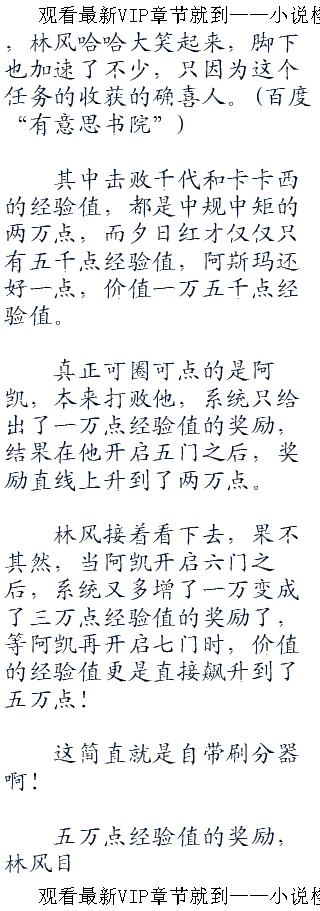 观看最新VIP章节就到——小说检
，林风哈哈大笑起来，脚下
也加速了不少，只因为这个
任务的收获的确喜人。(百度
“有意思书院”)
其中击败千代和卡卡西
的经验值，都是中规中矩的
两万点，而夕日红才仅仅只
有五千点经验值，阿斯玛还
好一点，价值一万五千点经
验值。
真正可圈可点的是阿
凯，本来打败他，系统只给
出了一万点经验值的奖励，
结果在他开启五门之后，奖
励直线上升到了两万点。
林风接着看下去，果不
其然，当阿凯开启六门之
后，系统又多增了一万变成
了三万点经验值的奖励了，
等阿凯再开启七门时，价值
的经验值更是直接飙升到了
五万点！
这简直就是自带刷分器
啊！
五万点经验值的奖励，
林风目
观看最新VIP章节就到——小说检